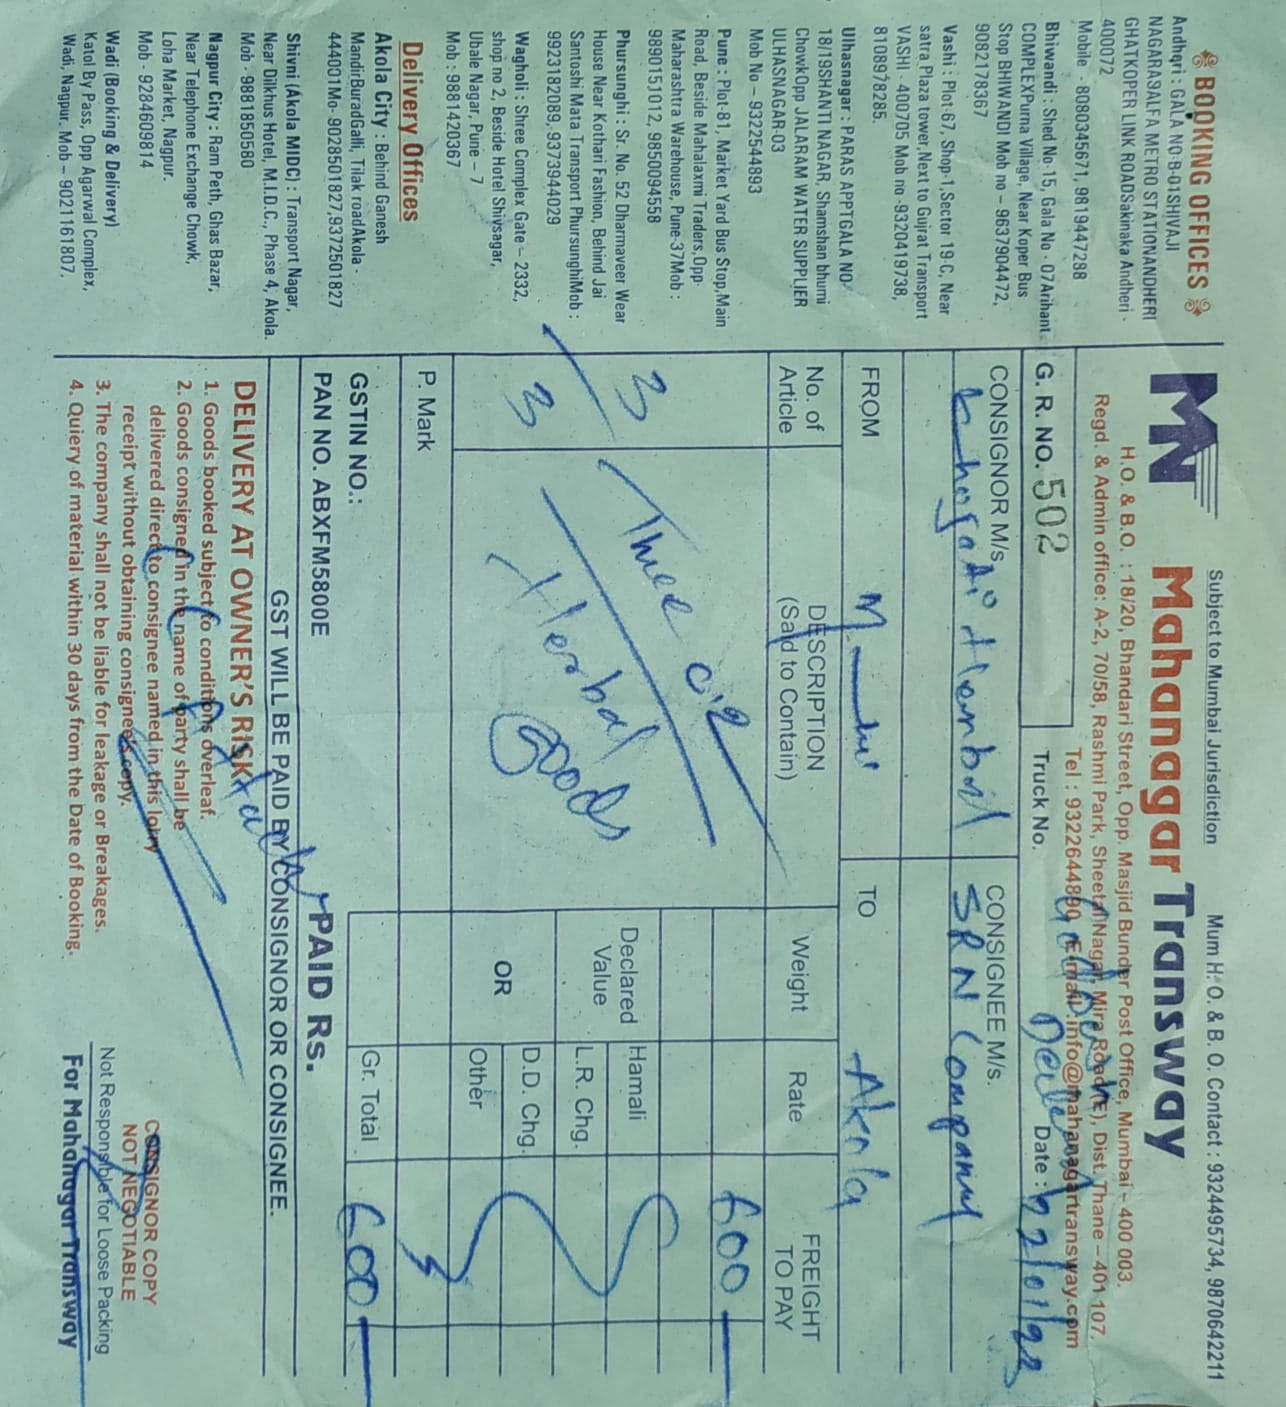 BOOKING OFFICES
Andheri : GALA NO-B-01SHIVAJI
NAGARASALFA METRO STATIONANDHERI
GHATKOPER LINK ROADSakinaka Andheri -
400072
Mobile - 8080345671, 9819447288
Bhiwandi : Shed No-15, Gala No - 07Arihant
COMPLEXPurna Village, Near Koper Bus
Stop BHIWANDI Mob no – 9637904472,
9082178367
Vashi : Plot-67, Shop-1,Sector 19-C, Near
satra Plaza tower,Next to Gujrat Transport
VASHI - 400705 Mob no -9320419738,
8108978285.
Ulhasnagar : PARAS APPTGALA NO-
18/19SHANTI NAGAR, Shamshan bhumi
ChowkOpp JALARAM WATER SUPPLIER
ULHASNAGAR-03
Mob No – 9322544893
Pune : Plot-81, Market Yard Bus Stop,Main
Road, Beside Mahalaxmi Traders,Opp-
Maharashtra Warehouse, Pune-37Mob :
9890151012, 9850094558
Phursunghi : Sr. No. 52 Dharmaveer Wear
House Near Kothari Fashion, Behind Jai
Santoshi Mata Transport PhursunghiMob :
9923182089, 9373944029
Wagholi : Shree Complex Gate – 2332,
shop no 2, Beside Hotel Shivsagar,
Ubale Nagar, Pune – 7
Mob : 9881420367
Delivery Offices
Akola City : Behind Ganesh
MandirBuradGalli, Tilak roadAkola -
444001Mo- 9028501827,9372501827
Shivni (Akola MIDC) : Transport Nagar,
Near Dilkhus Hotel, M.I.D.C., Phase 4, Akola.
Mob -9881850580
Nagpur City : Ram Peth, Ghas Bazar,
Near Telephone Exchange Chowk,
Loha Market, Nagpur.
Mob : 9284609814
Wadi (Booking & Delivery)
Katol By Pass, Opp Agarwal Complex,
Wadi, Nagpur. Mob – 9021161807.
Subject to Mumbai Jurisdiction Mum H. O. & B. O. Contact : 9324495734, 9870642211
MN Mahanagar Transway
H.O. & B.O. : 18/20, Bhandari Street, Opp. Masjid Bunder Post Office, Mumbai – 400 003.
Regd. & Admin office: A-2, 70/58, Rashmi Park, Sheetal Nagar, Mira Road (E), Dist. Thane – 401 107.
Tel : 9322644890 E-mail : info@mahanagartransway.com
G. R. NO. 502 Truck No. Date : 22/01/22
Godown
CONSIGNOR M/s CONSIGNEE M/s.
Herbal SRN Company
FROM TO Akola
No. of Article DESCRIPTION (Said to Contain) Weight Rate FREIGHT TO PAY
3 Three 600
Herbal Goods
3
Declared Value Hamali
L.R. Chg.
OR D.D. Chg.
Other
P. Mark
GSTIN NO.: Gr. Total 600
PAN NO. ABXFM5800E PAID Rs.
GST WILL BE PAID BY CONSIGNOR OR CONSIGNEE.
DELIVERY AT OWNER'S RISK
1. Goods booked subject to conditions overleaf.
2. Goods consigned in the name of party shall be
delivered direct to consignee named in this lorry
receipt without obtaining consignees copy.
3. The company shall not be liable for leakage or Breakages.
4. Quiery of material within 30 days from the Date of Booking.
CONSIGNOR COPY
NOT NEGOTIABLE
Not Responsible for Loose Packing
For Mahanagar Transway